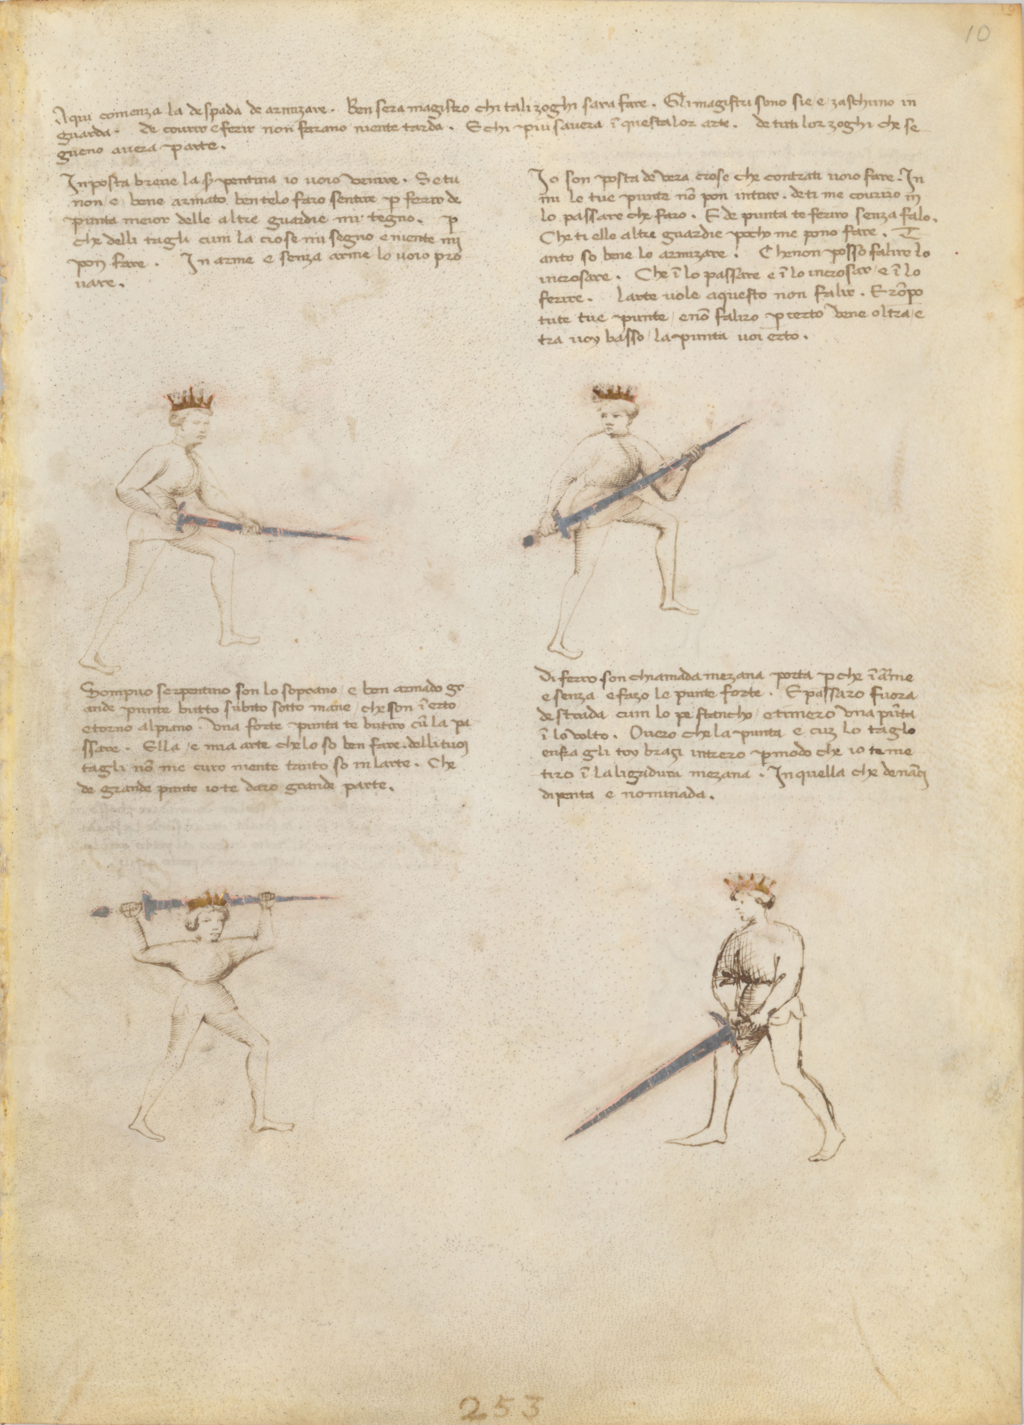 10
Aqui comenza la de spada de armizare. Ben sera magistro chi tali zoghi sara fare. Gli magistri sono sie e zaschuno in
guarda. de courir e ferir non farano niente tarda. E chi più savera ĩ questa lor arte. de tuti lor zoghi che se
gueno avera parte.
In posta breve la sꝑpentina io voio venire. Se tu
non e bene armato ben telo faro sentire ꝑ ferir de
punta meior delle altre guardie mi tegno. ꝑ
che delli tagli cum la crose mi segno e niente mi
pon fare. In arme e senza arme lo voio pro
vare.
Io son posta de vera crose che contra ti voio fare. In
mi le tue punte nõ pon intrar. de ti me covrirò ĩ
lo passare che faro. E de punta te ferirò senza falo.
Che ti e lo altre guardie pocho me pono fare. T
anto so bene lo armizare. Che non posso falir lo
incrosare. Che ĩ lo passare e ĩ lo incrosar e ĩ lo
ferire. larte vole a questo non falir. E rõpo
tute tue punte e nõ falirò ꝑ certo vene oltra e
tra voy basso la punta voi erto.
Sompno serpentino son lo soprano e ben armado gr
ande punte butto subito sotto mane che son ĩ erto
e torno al piano una forte punta te butirò cũ la pa
ssare. Ella e mia arte che lo so ben fare. delli tuoy
tagli nõ me curo niente tanto so ĩ larte. Che
de grande punte io te darò grande parte.
Di ferro son chiamada mezana porta ꝑche ĩ arme
e senza e fazo le punte forte. E passarò fuora
de strada cum lo pe stancho e tirerò una pũta
ĩ lo volto. Overo che la punta e cuz lo taglo
entra gli toy brazi intrerò ꝑ modo che io te me
tirò ĩ la ligadura mezana. In quella che denãci
dipenta e nominada.
253